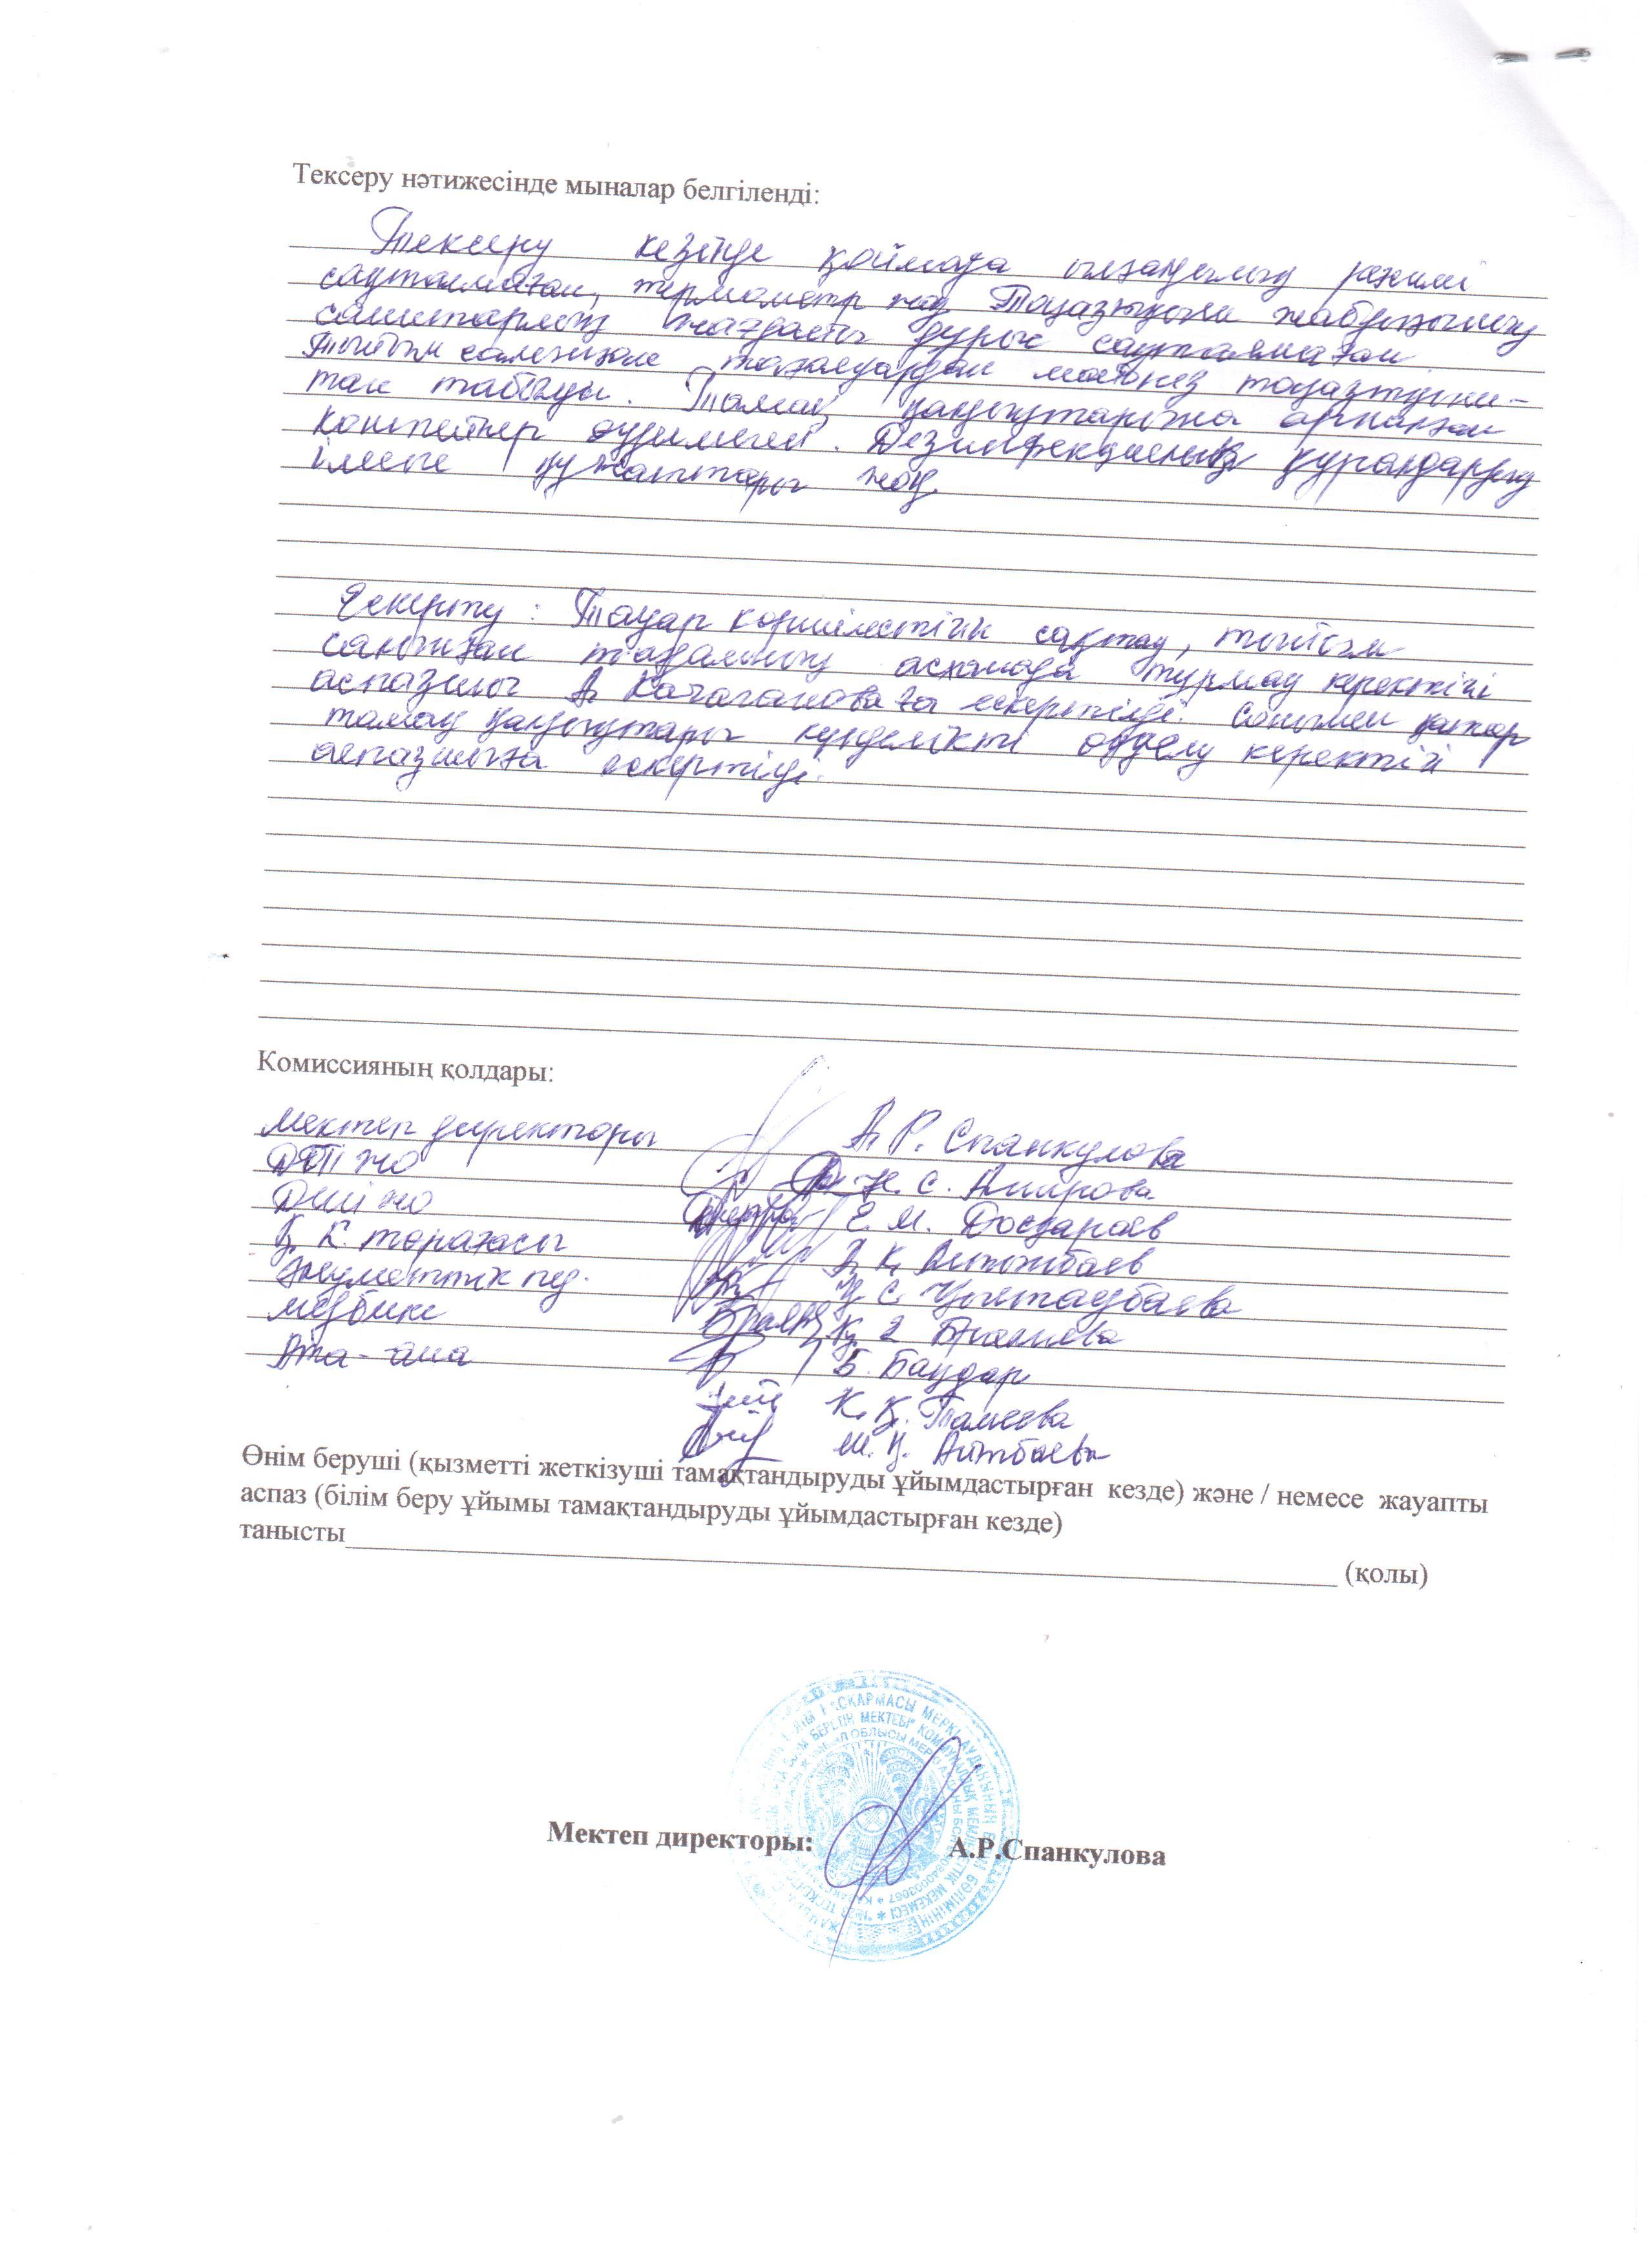 Тексеру нәтижесінде мыналар белгіленді:
Тексеру кезінде қоймада ылғалдылық режимі
сақталмаған, термометр жоқ. Тоңазытқыш жабдығының
санитарлық жағдайы дұрыс сақталмаған
Тыйым салынған тағамдардан майонез тоңазтқыш-
тан табылды. Тамақ қалдықтарына арналған
контейнер өңделмеген. Дезинфекциялық құралдардың
ілеспе құжаттары жоқ.
Ескерту: Тауар көршілестігін сақтау, тыйым
салынған тағамның асханада тұрмау керектігі
аспазшы А. Качагановаға ескертілді. Сонымен қатар
тамақ қалдықтары күнделікті өңделу керектігі
аспазшыға ескертілді.
Комиссияның қолдары:
Мектеп директоры А. Р. Спанкулова
ДТІ жо Н. С. Аширова
ДШІ жо Е. М. Досдараев
Қ. К. төрағасы
Әлуметтік пед.
медбике
Ата-ана Б. Баңдар
К. Қ. Тамеева
М. Қ. Айтбаева
Өнім беруші (қызметті жеткізуші тамақтандыруды ұйымдастырған кезде) және / немесе жауапты
аспаз (білім беру ұйымы тамақтандыруды ұйымдастырған кезде)
танысты (қолы)
Мектеп директоры: А.Р.Спанкулова